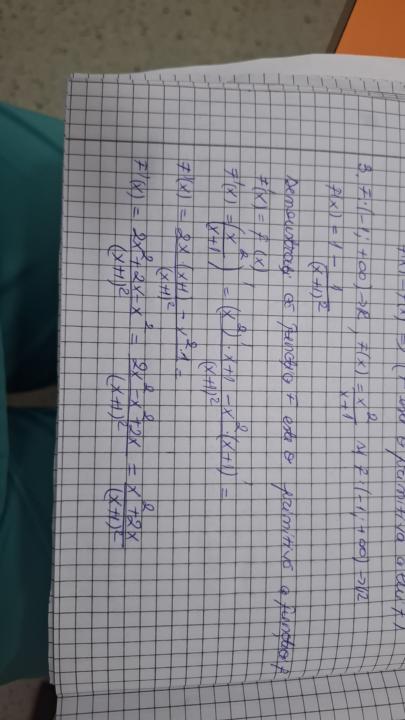 3. F:(-1;+∞)→R, F(x) = x²/(x+1) și f:(-1;+∞)→R
f(x) = 1 - 1/(x+1)²
Demonstrați că funcția F este o primitivă a funcției f
F'(x) = f(x)
F'(x) = (x²/(x+1))' = ((x²)'·x+1-x²·(x+1)')/(x+1)² =
F'(x) = (2x(x+1) - x²·1)/(x+1)² =
F'(x) = (2x²+2x-x²)/(x+1)² = (2x²-x²+2x)/(x+1)² = (x²+2x)/(x+1)²